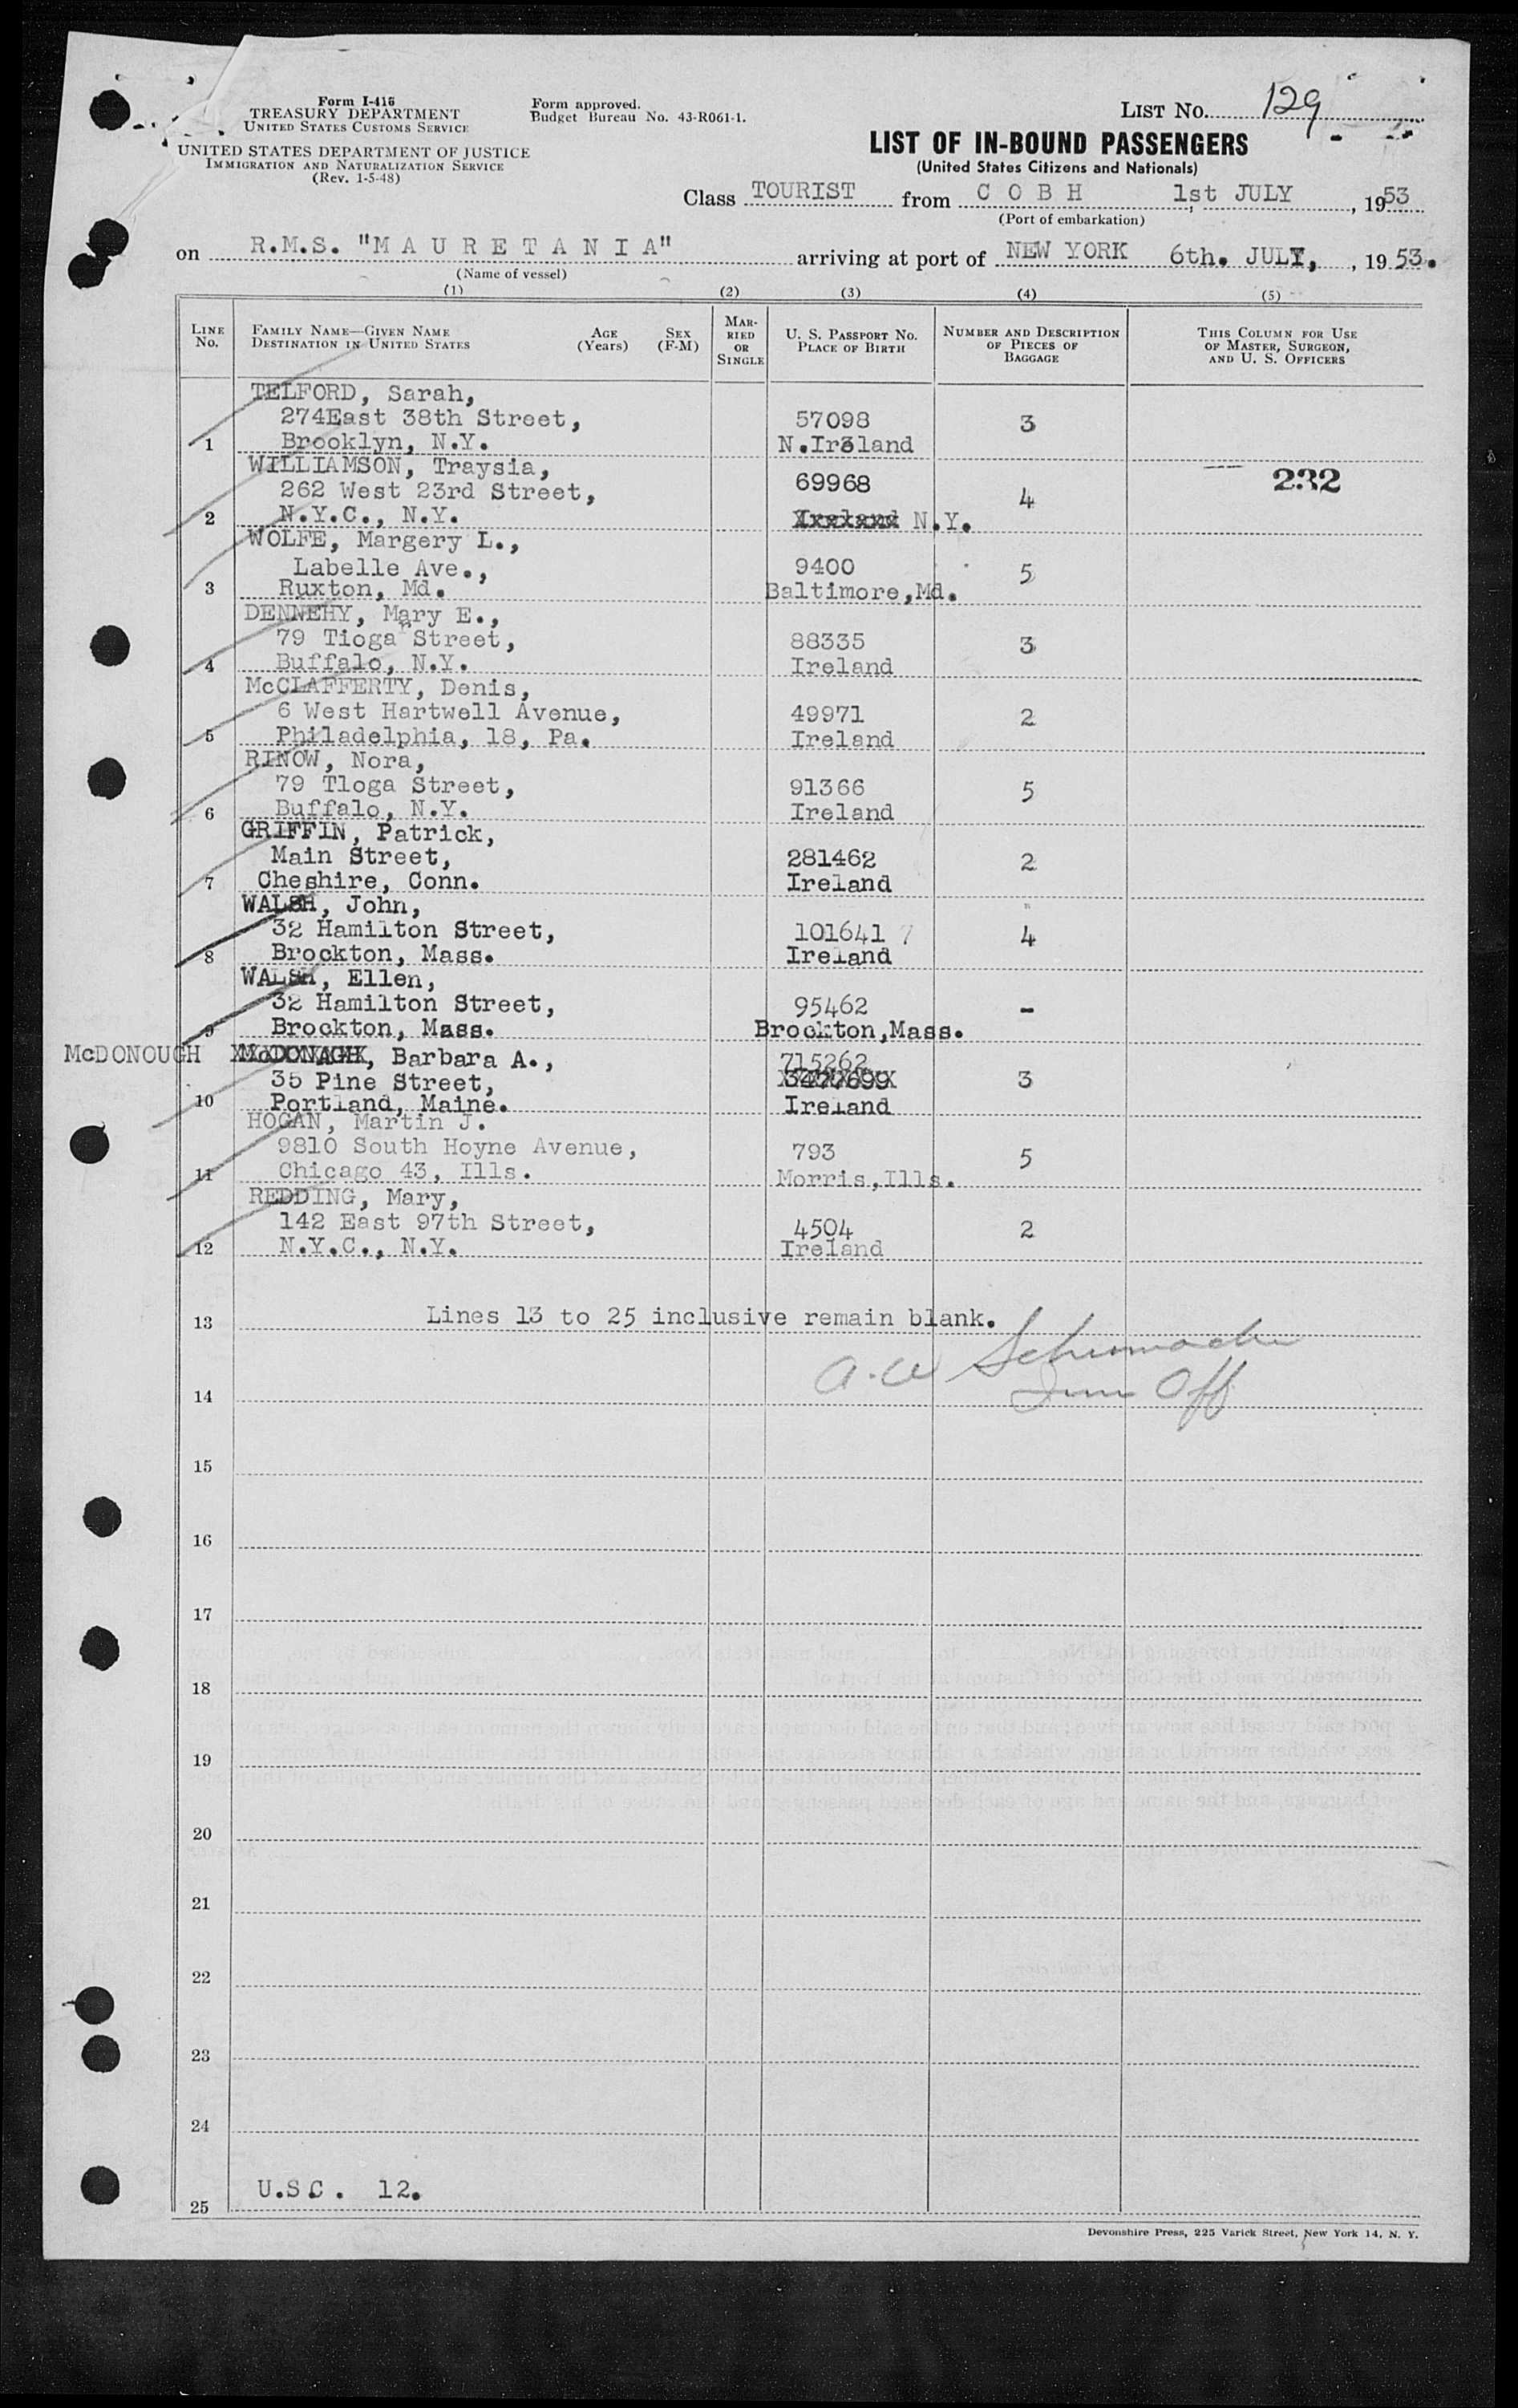 Form I-416
TREASURY DEPARTMENT
UNITED STATES CUSTOMS SERVICE
UNITED STATES DEPARTMENT OF JUSTICE
IMMIGRATION AND NATURALIZATION SERVICE
(Rev. 1-5-48)
Form approved.
Budget Bureau No. 43-R061-1.
LIST No. 129
LIST OF IN-BOUND PASSENGERS
(United States Citizens and Nationals)
Class TOURIST from C O B H 1st JULY, 1953
(Port of embarkation)
on R.M.S. "M A U R E T A N I A" arriving at port of NEW YORK 6th. JULY, 1953.
(Name of vessel)
(1) (2) (3) (4) (5)
LINE No. FAMILY NAME—GIVEN NAME DESTINATION IN UNITED STATES AGE (Years) SEX (F-M) MARRIED OR SINGLE U. S. PASSPORT No. PLACE OF BIRTH NUMBER AND DESCRIPTION OF PIECES OF BAGGAGE THIS COLUMN FOR USE OF MASTER, SURGEON, AND U. S. OFFICERS
TELFORD, Sarah,
274East 38th Street, 57098 3
1 Brooklyn, N.Y. N.Ireland
WILLIAMSON, Traysia, 232
262 West 23rd Street, 69968 4
2 N.Y.C., N.Y. Ireland N.Y.
WOLFE, Margery L.,
Labelle Ave., 9400 5
3 Ruxton, Md. Baltimore,Md.
DENNEHY, Mary E.,
79 Tioga Street, 88335 3
4 Buffalo, N.Y. Ireland
McCLAFFERTY, Denis,
6 West Hartwell Avenue, 49971 2
5 Philadelphia, 18, Pa. Ireland
RINOW, Nora,
79 Tloga Street, 91366 5
6 Buffalo, N.Y. Ireland
GRIFFIN, Patrick,
Main Street, 281462 2
7 Cheshire, Conn. Ireland
WALSH, John,
32 Hamilton Street, 101641 7 4
8 Brockton, Mass. Ireland
WALSH, Ellen,
32 Hamilton Street, 95462 -
9 Brockton, Mass. Brockton,Mass.
McDONOUGH McDONAGH, Barbara A., 715262
35 Pine Street, 3
10 Portland, Maine. Ireland
HOGAN, Martin J.
9810 South Hoyne Avenue, 793 5
11 Chicago 43, Ills. Morris,Ills.
REDDING, Mary,
142 East 97th Street, 4504 2
12 N.Y.C., N.Y. Ireland
13 Lines 13 to 25 inclusive remain blank.
A.W Schumacher
14 Imm Off
15
16
17
18
19
20
21
22
23
24
25 U.S.C. 12.
Devonshire Press, 225 Varick Street, New York 14, N. Y.